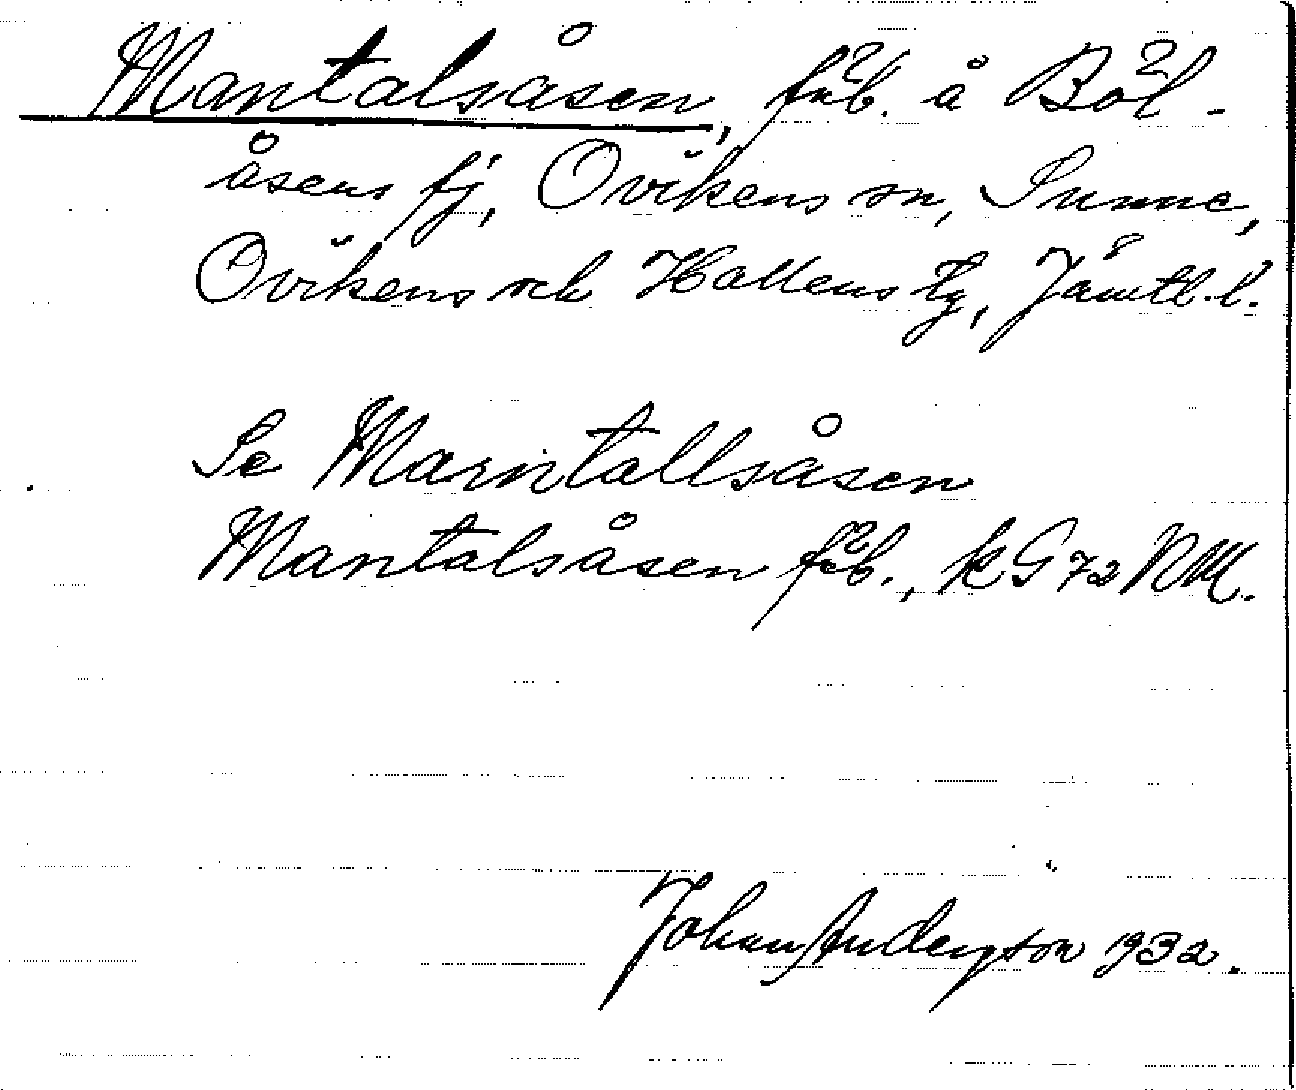 Mantalsåsen, fäb. å Böl-
åsens fj, Ovikens sn, Sunne,
Ovikens och Hallens tg, Jämtl. l.
Se Marntallsåsen
Mantalsåsen fäb., kG72 NM.
Johan Anderson 1932.